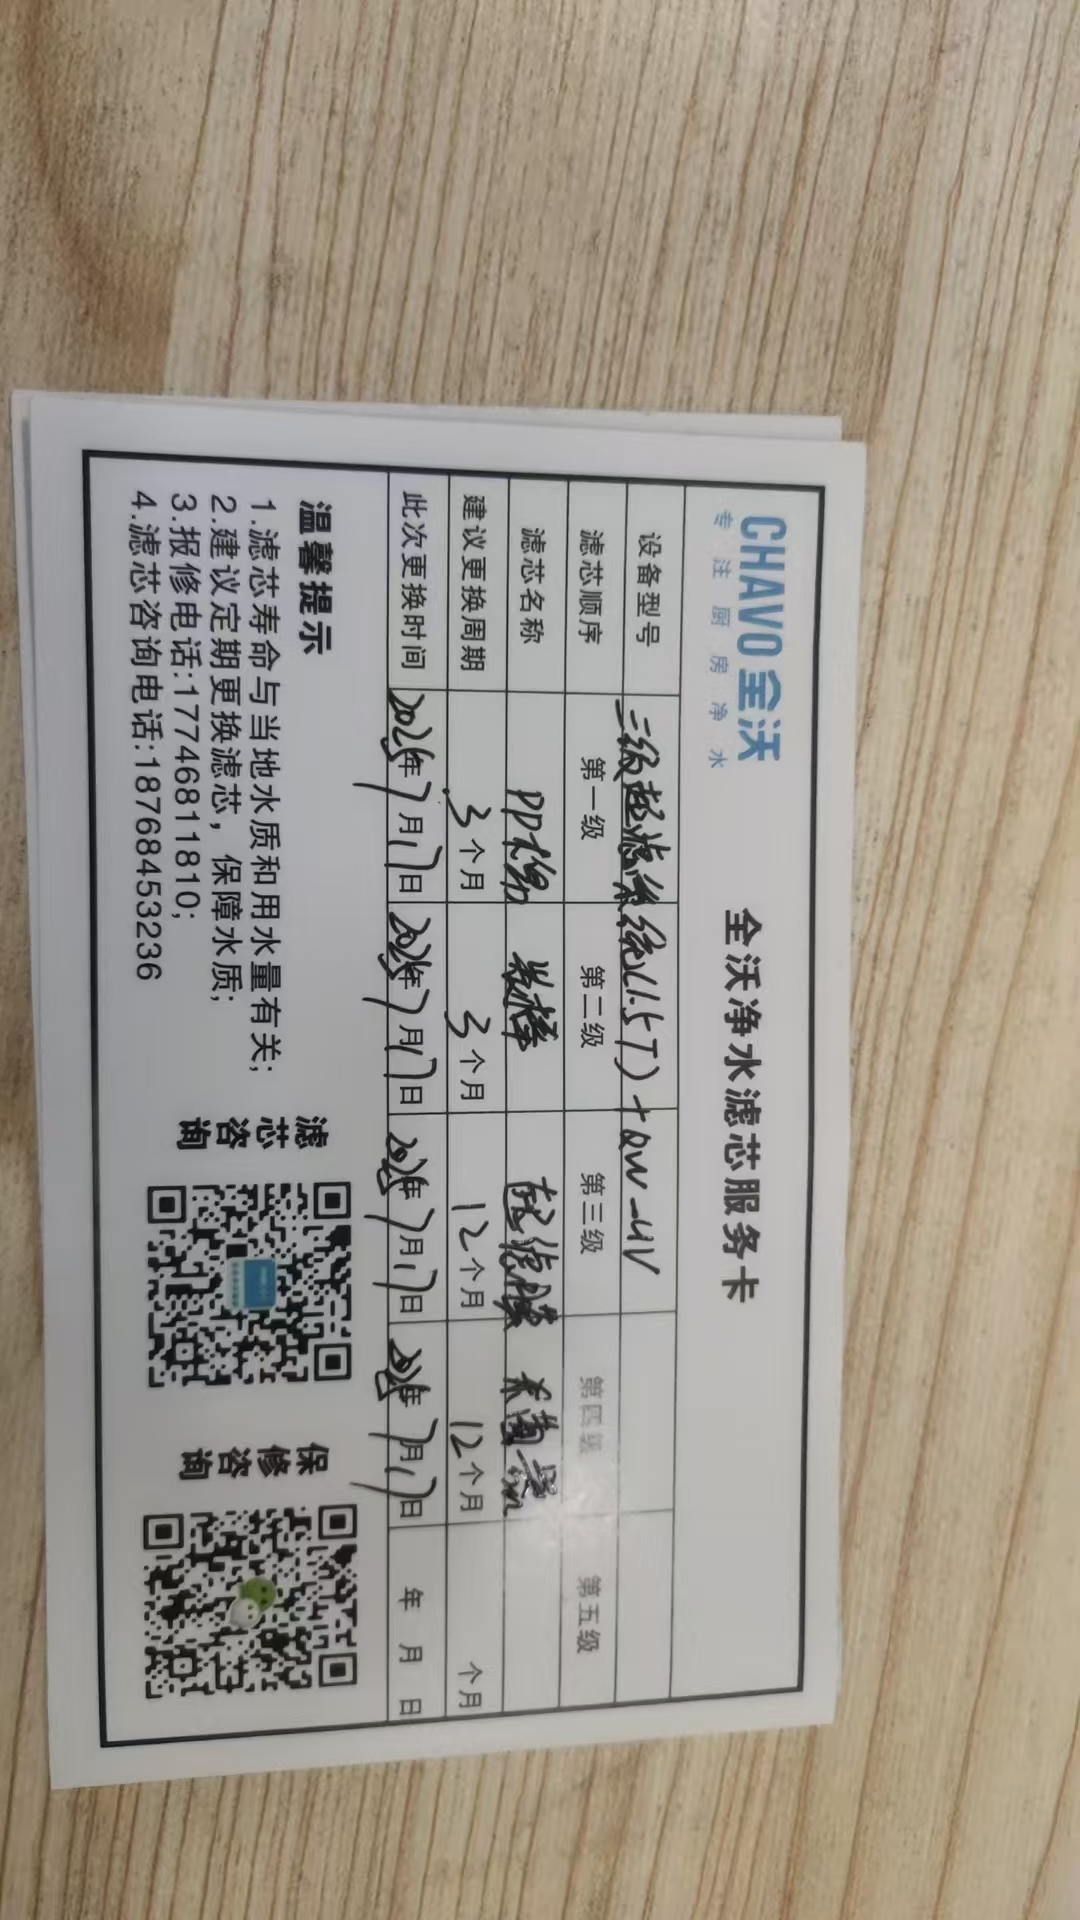 CHAVO 全沃
专注厨房净水
全沃净水滤芯服务卡
设备型号 三级超滤系统(1.5T)+QW-UV
滤芯顺序 第一级 第二级 第三级 第四级 第五级
滤芯名称 PP棉 炭棒 超滤膜 杀菌器
建议更换周期 3个月 3个月 12个月 12个月 个月
此次更换时间 2025年7月17日 2025年7月17日 2025年7月17日 2025年7月17日 年 月 日
温馨提示
1.滤芯寿命与当地水质和用水量有关;
2.建议定期更换滤芯，保障水质;
3.报修电话:17746811810;
4.滤芯咨询电话:18768453236
滤芯咨询
保修咨询